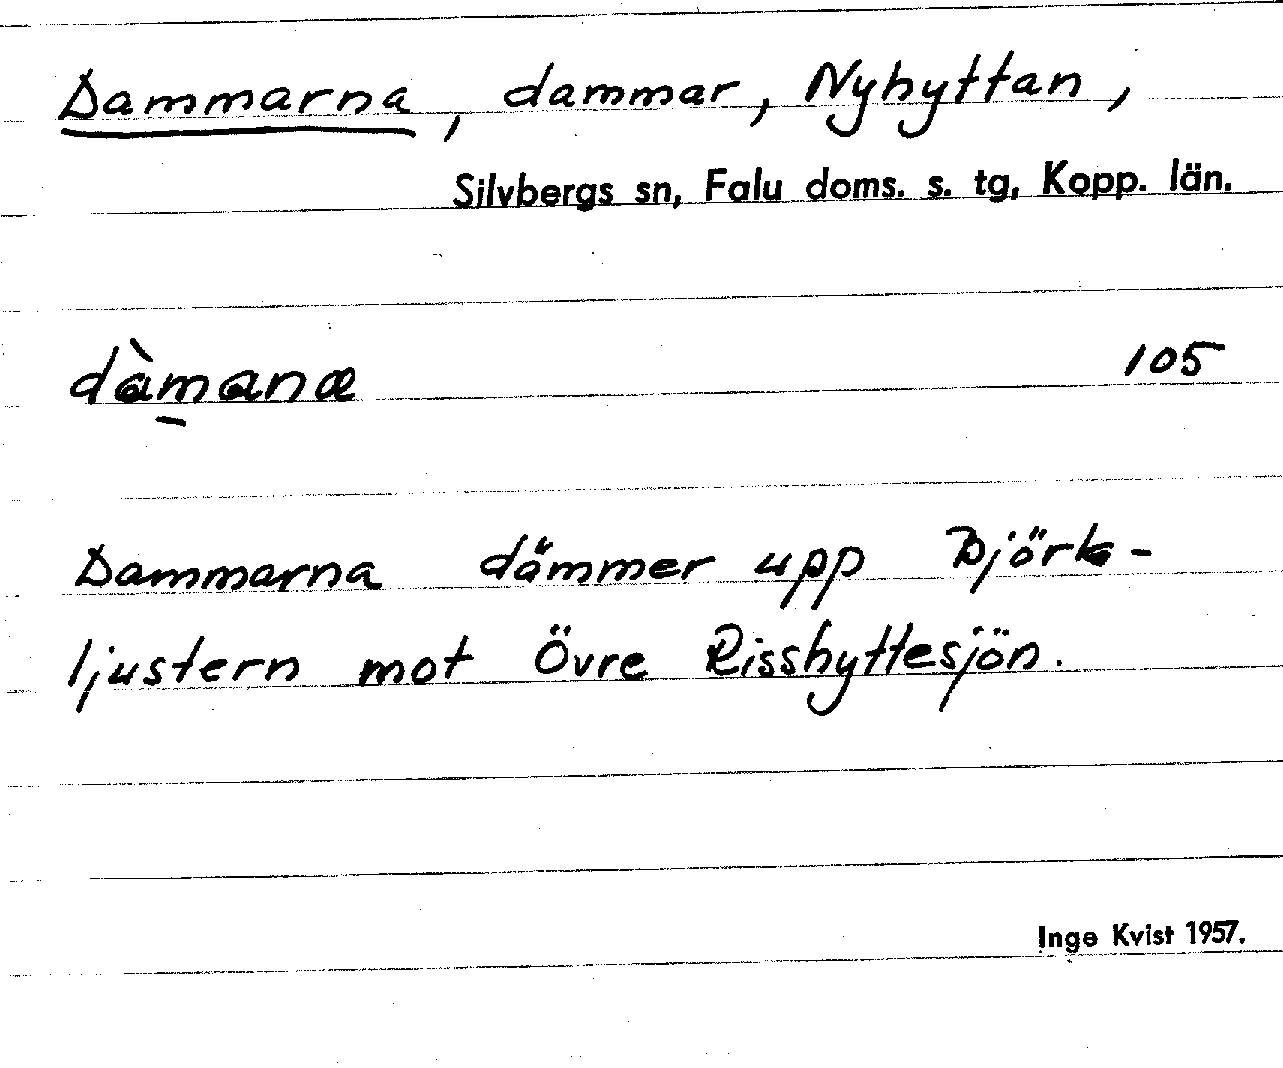 Dammarna, dammar, Nyhyttan,
Silvbergs sn, Falu doms. s. tg, Kopp. län.
dàmanæ 105
Dammarna dämmer upp Björk-
ljustern mot Övre Risshyttesjön.
Inge Kvist 1957.